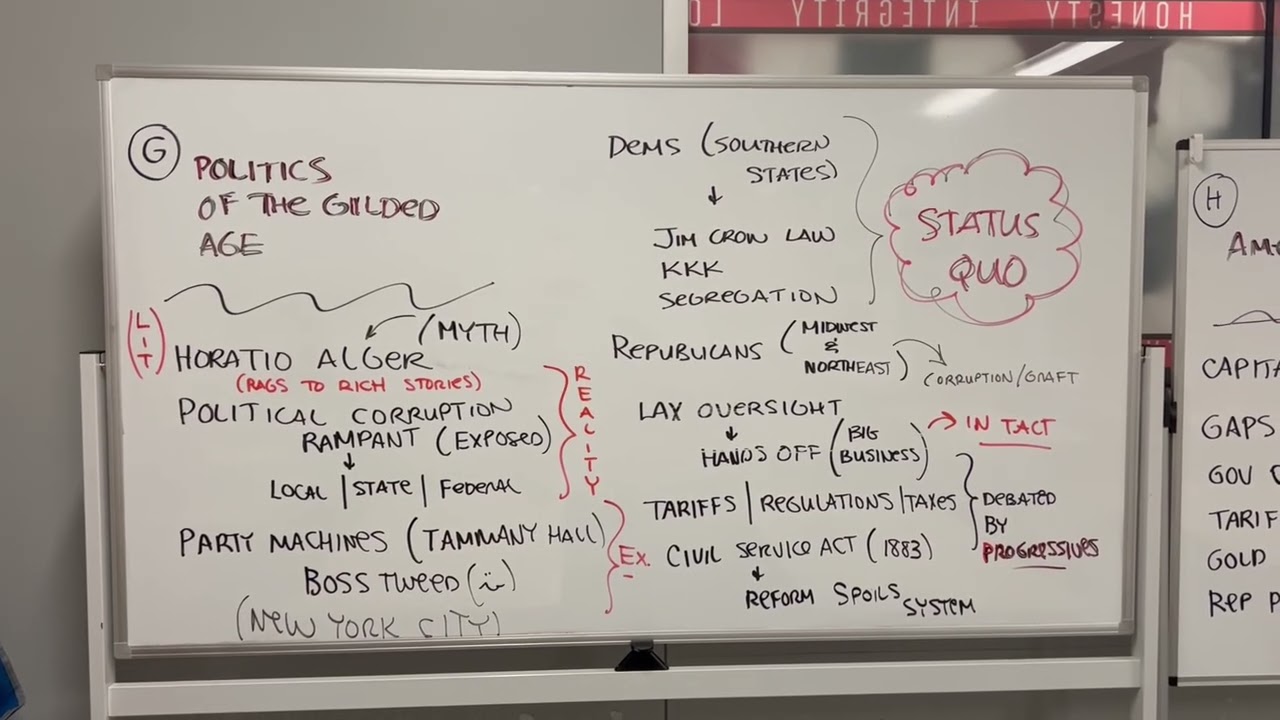 HONESTY INTEGRITY LO
G
POLITICS
OF THE GILDED
AGE
(MYTH)
(LIT)
HORATIO ALGER
(RAGS TO RICH STORIES)
POLITICAL CORRUPTION
RAMPANT (EXPOSED)
LOCAL | STATE | FEDERAL
REALITY
PARTY MACHINES (TAMMANY HALL)
BOSS TWEED
(NEW YORK CITY)
EX.
DEMS (SOUTHERN
STATES)
JIM CROW LAW
KKK
SEGREGATION
STATUS
QUO
REPUBLICANS (MIDWEST
&
NORTHEAST)
CORRUPTION/GRAFT
LAX OVERSIGHT
HANDS OFF (BIG
BUSINESS)
IN TACT
TARIFFS | REGULATIONS | TAXES
DEBATED
BY
PROGRESSIVES
CIVIL SERVICE ACT (1883)
REFORM SPOILS SYSTEM
H
CAPITA
GAPS
GOV
TARIF
GOLD
REP P